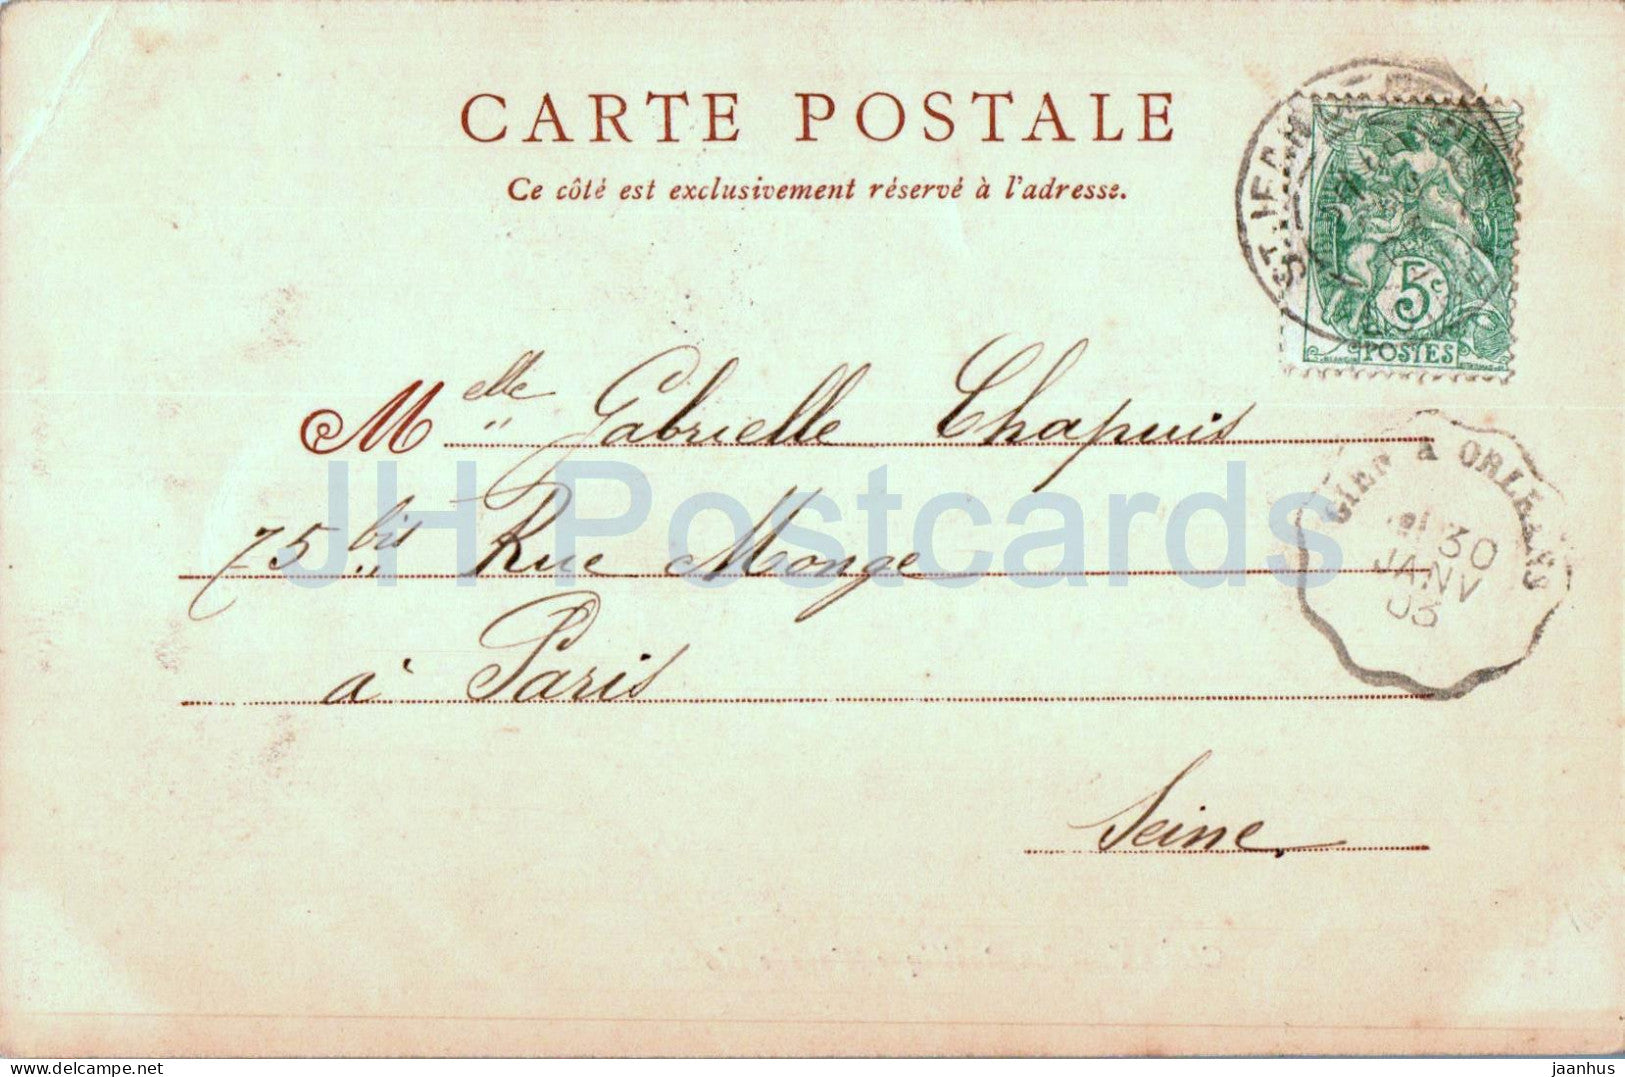 CARTE POSTALE
Ce côté est exclusivement réservé à l'adresse.
ST JEAN
5c
POSTES
Melle Gabrielle Chapuis
75 bis Rue Monge
à Paris
Seine
GIEN à ORLÉANS
30
JANV
03
JH Postcards
delcampe.net
jaanhus